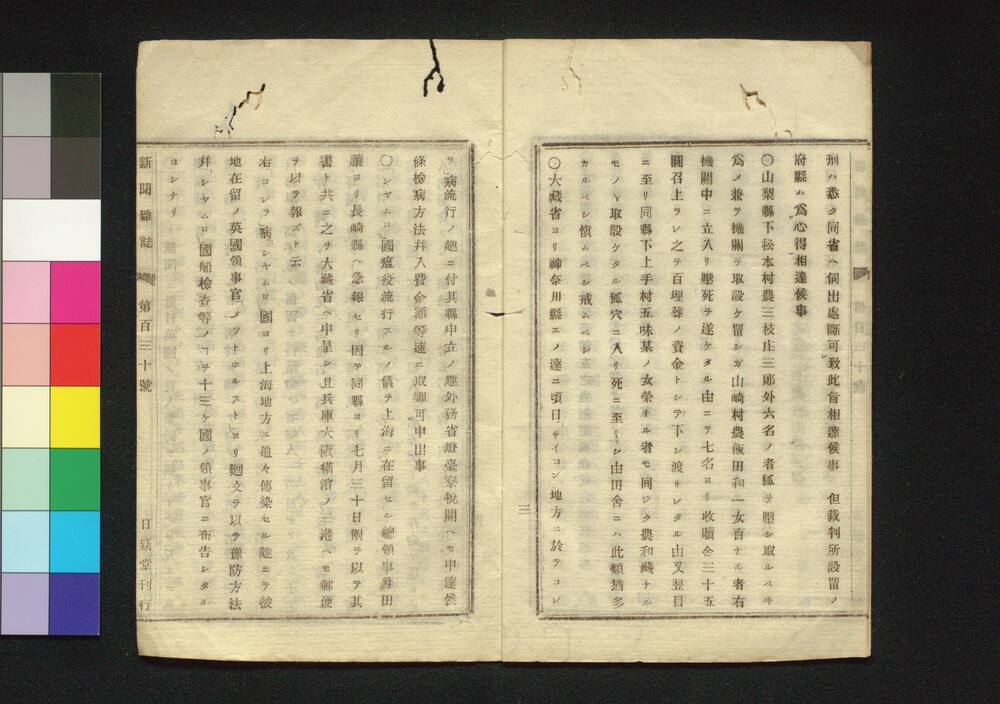 刑ハ悉ク同省ヘ伺出處斷可致此旨相達候事　但裁判所設置ノ
府縣ハ爲心得相達候事
〇山梨縣下松本村農三枝庄三郎外六名ノ者狐ヲ壓シ取ルベキ
爲メ兼テ機關ヲ取設ケ置シガ山崎村農飯田和一女百ナル者右
機關中ニ立入リ壓死ヲ遂ケタル由ニテ七名ヨリ收贖金三十五
圓召上ラレ之ヲ百埋葬ノ資金トシテ下シ渡サレタル由又翌日
ニ至リ同縣下上手村五味某ノ女榮ナル者モ同ジク農和藏ナル
モノヽ取設ケタル狐穴ニ入リ死ニ至リシ由田舍ニハ此類猶多
カルベシ愼ムベシ戒ムベシ
〇大藏省ヨリ神奈川縣エノ達ニ頃日サイコン地方ニ於テコレ
三
ラ」病流行ノ趣ニ付其縣申立ノ趣外務省燈臺寮税關ヘモ申達候
條檢病方法幷入費金額等速ニ取調可申出事
〇シヤムロ」國瘟疫流行スルノ儀ヲ上海ニ在留セル總領事井田
讓ヨリ長崎縣ヘ急報セリ因テ同縣ヨリ七月三十日附ヲ以テ其
書ト共ニ之ヲ大藏省ヘ申呈シ且兵庫大阪横濱ノ三港ヘモ郵便
ヲ以テ報ズト云
右コレラ」病シヤムロ」國ヨリ上海地方エ追々傳染セル趣ニテ彼
地在留ノ英國領事官」メツトホルスト」ヨリ廻文ヲ以テ豫防方法
幷」シヤムロ」國船檢査等ノヿヲ十三ケ國ノ領事官ニ布告シタル
ヨシナリ
新聞雜誌　第百三十號　日新堂刊行